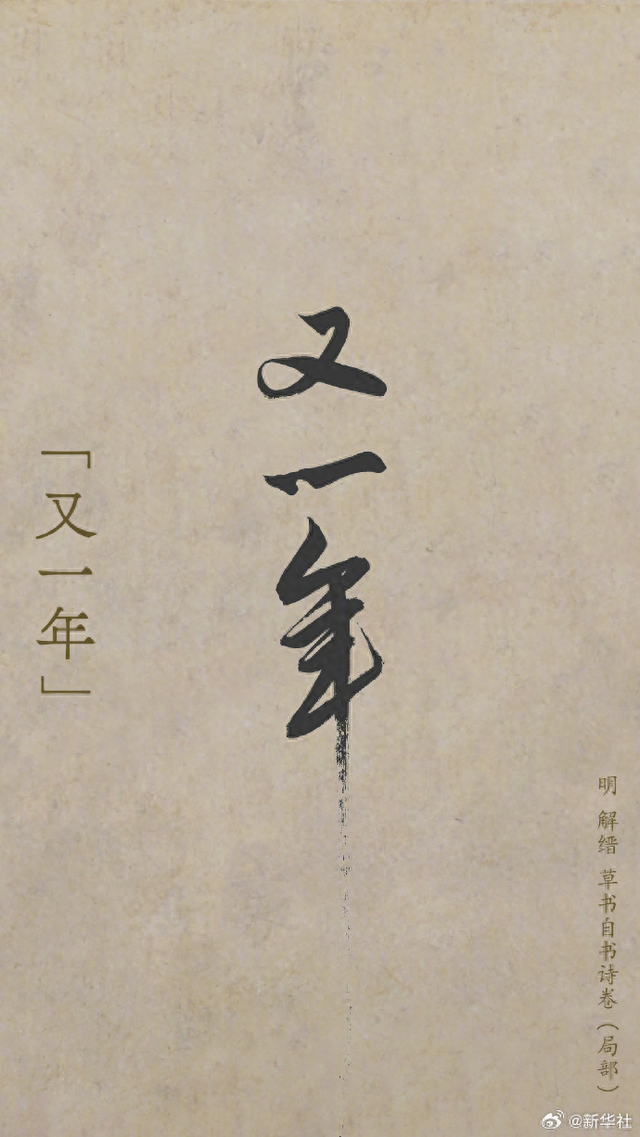 又一年
「又一年」
明 解缙 草书自书诗卷(局部)
@新华社